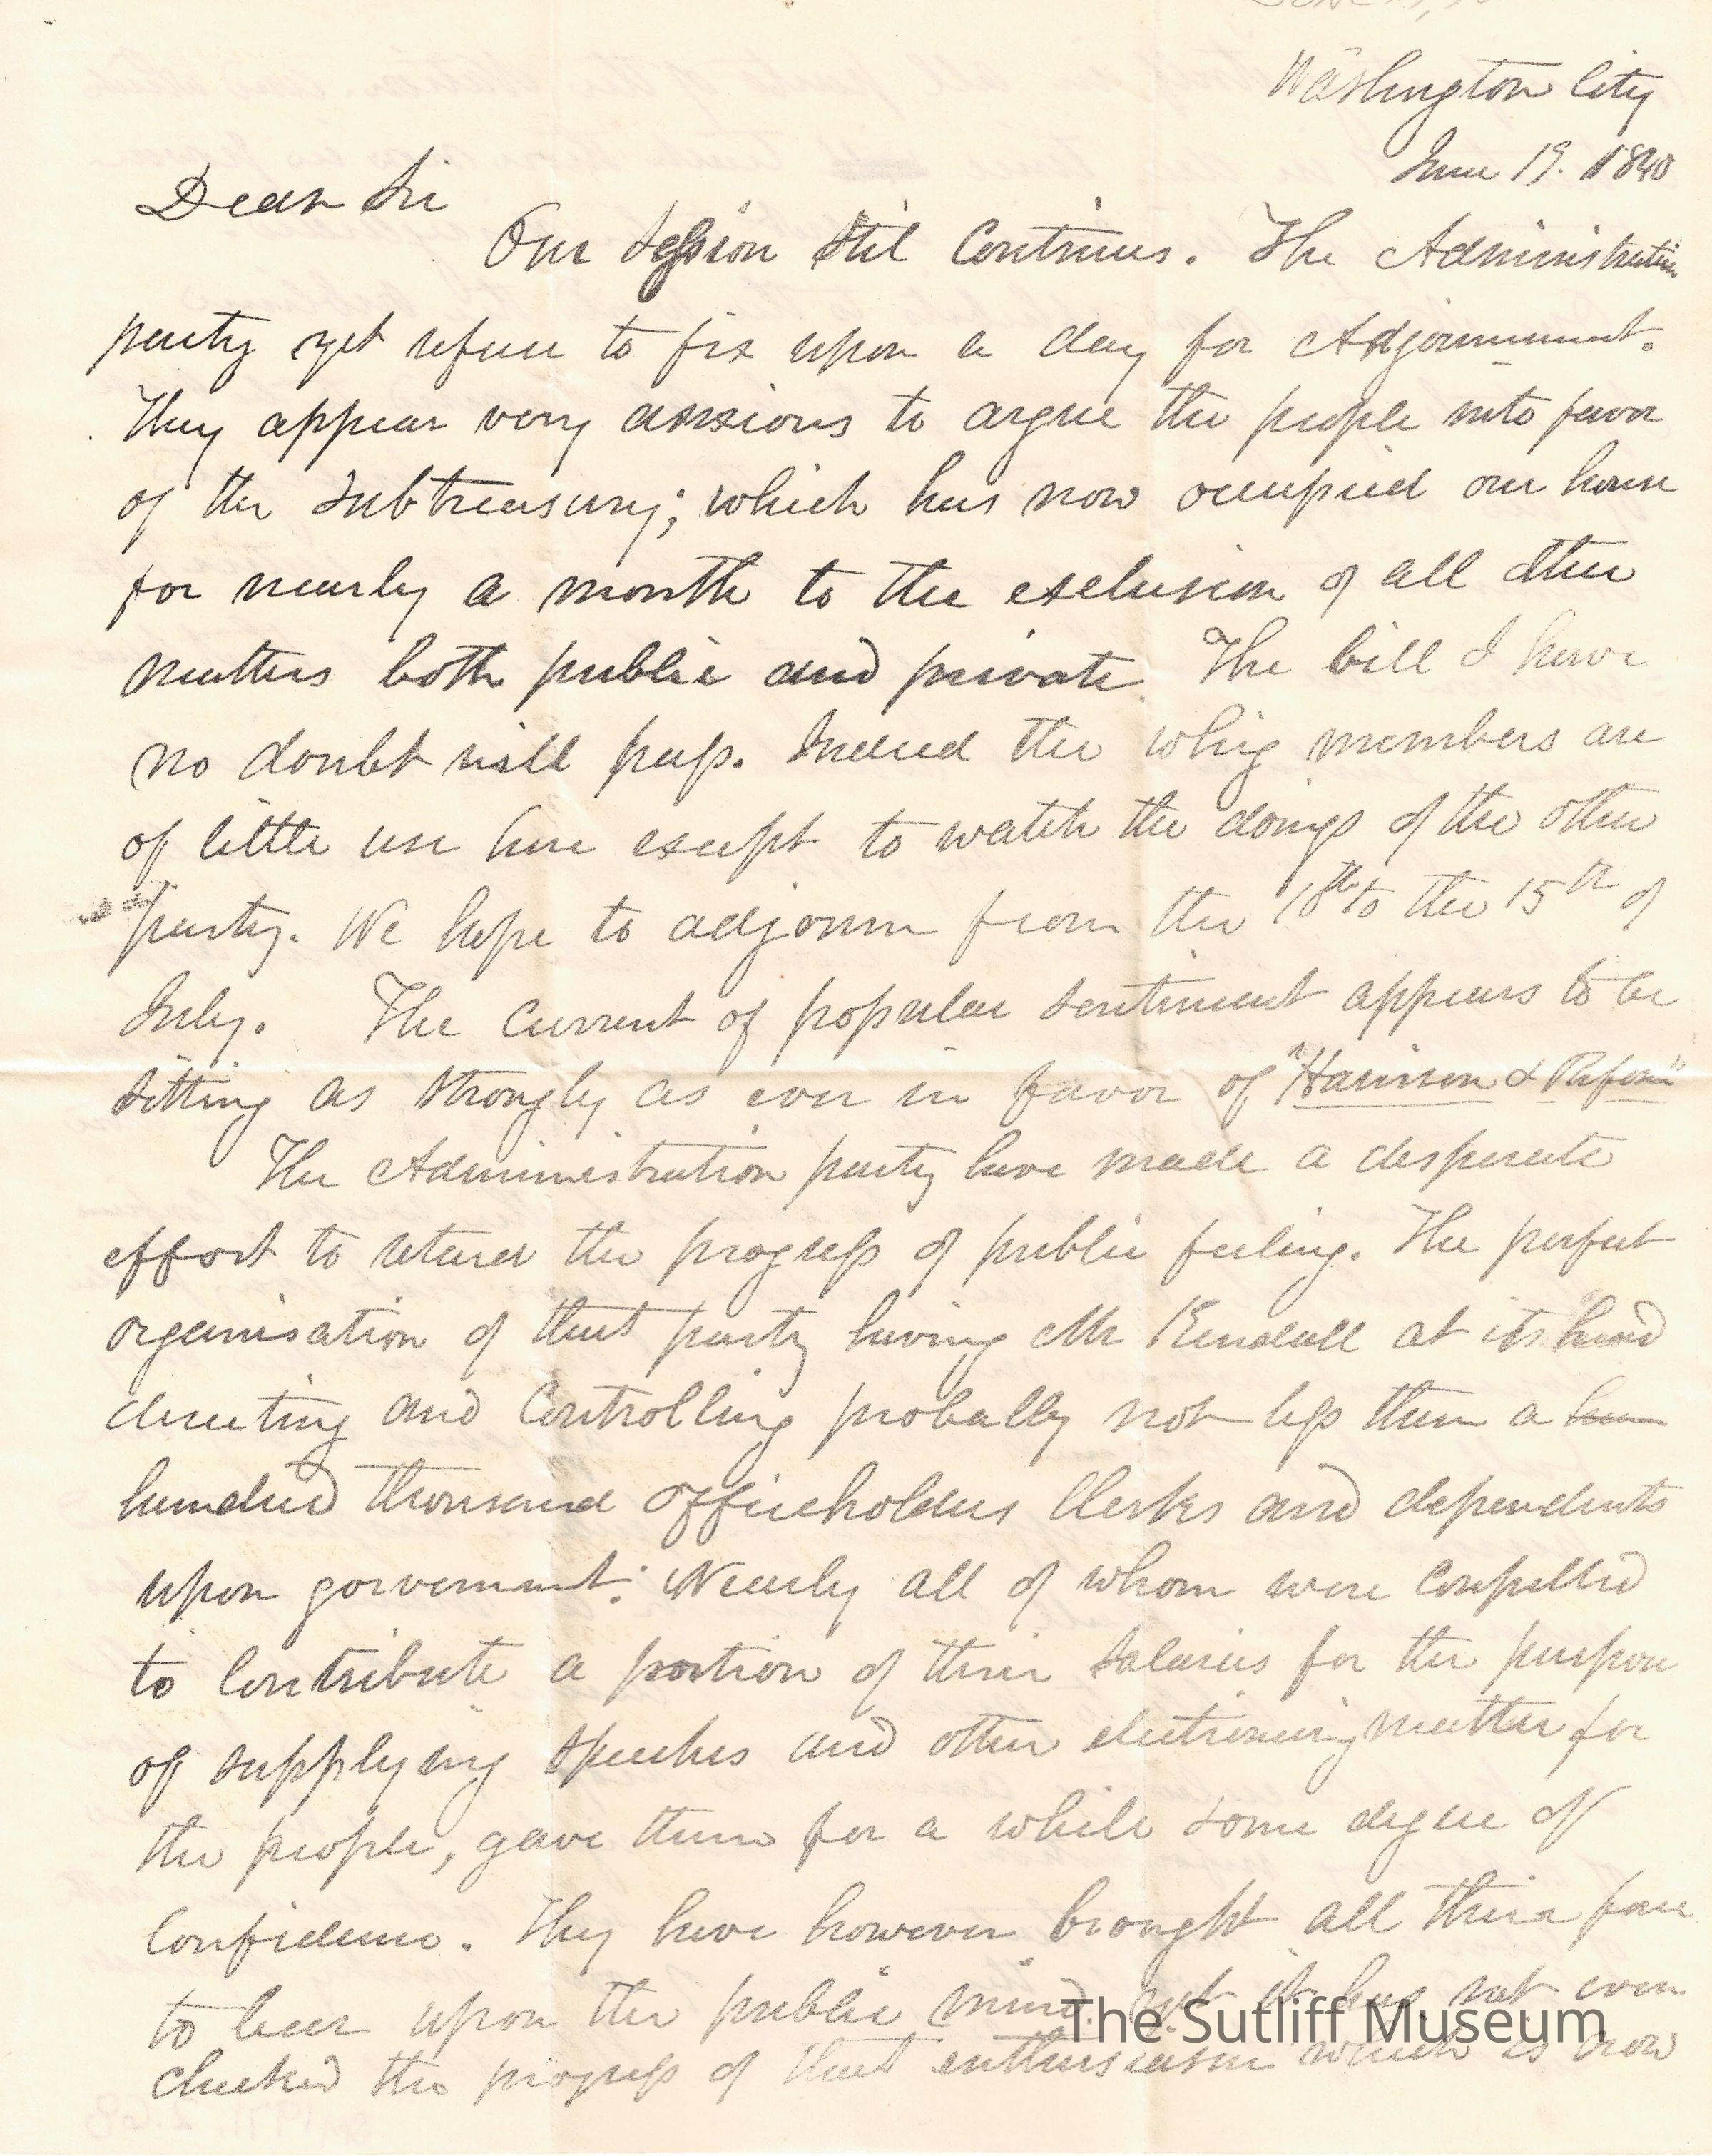 Washington City
June 19. 1840
Dear Sir
Our Session Stil Continues. The Administration
party yet refuse to fix upon a day for Adjournment.
They appear very anxious to argue the people into favor
of the Subtreasury; which has now occupied our house
for nearly a month to the exclusion of all other
matters both public and private. The bill I have
no doubt will pass. Indeed the whig members are
of little use here except to watch the doings of the other
party. We hope to adjourn from the 10th to the 15th of
July. The Current of popular Sentiment appears to be
Sitting as Strongly as ever in favor of "Harrison & Reform"
The Administration party have made a desperate
effort to retard the progress of public feeling. The perfect
organisation of that party having Mr Kendall at its head
directing and Controlling probally not less than a
hundred thousand officeholders Clerks and dependents
upon government: Nearly all of whom were Compelled
to Contribute a portion of their Salaries for the purpose
of supplying Speeches and other electioneering matter for
the people, gave them for a while some degree of
Confidence. They have however brought all their force
to bear upon the public mind yet it has not even
The Sutliff Museum
checked the progress of that enthusiasm which is now